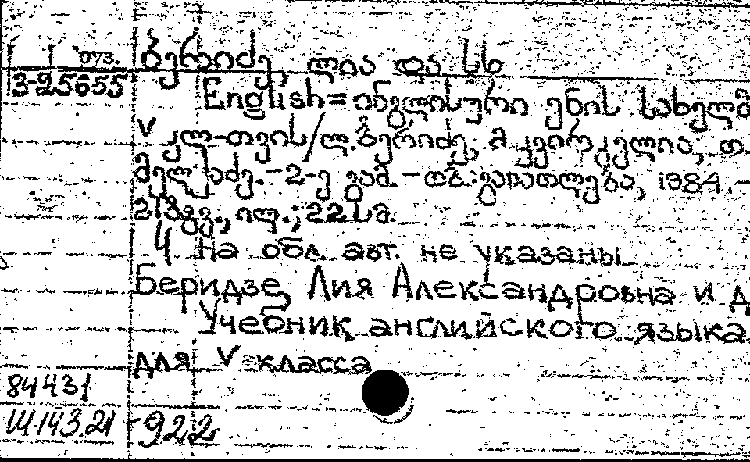 ბერიძე, ლია და სხ
073.
3-25655
English = ინგლისური ენის სახელმ
V კლ-თვის/ლ. ბერიძე, მ. კვირკველია, თ.
მელაძე. - 2-ე გამ. - თბ.: განათლება, 1984. -
213გვ., ილ.; 22სმ.
Ч На обл. авт. не указаны
Беридзе, Лия Александровна и д
Учебник английского языка
для V класса
84431
Ш143.21-922